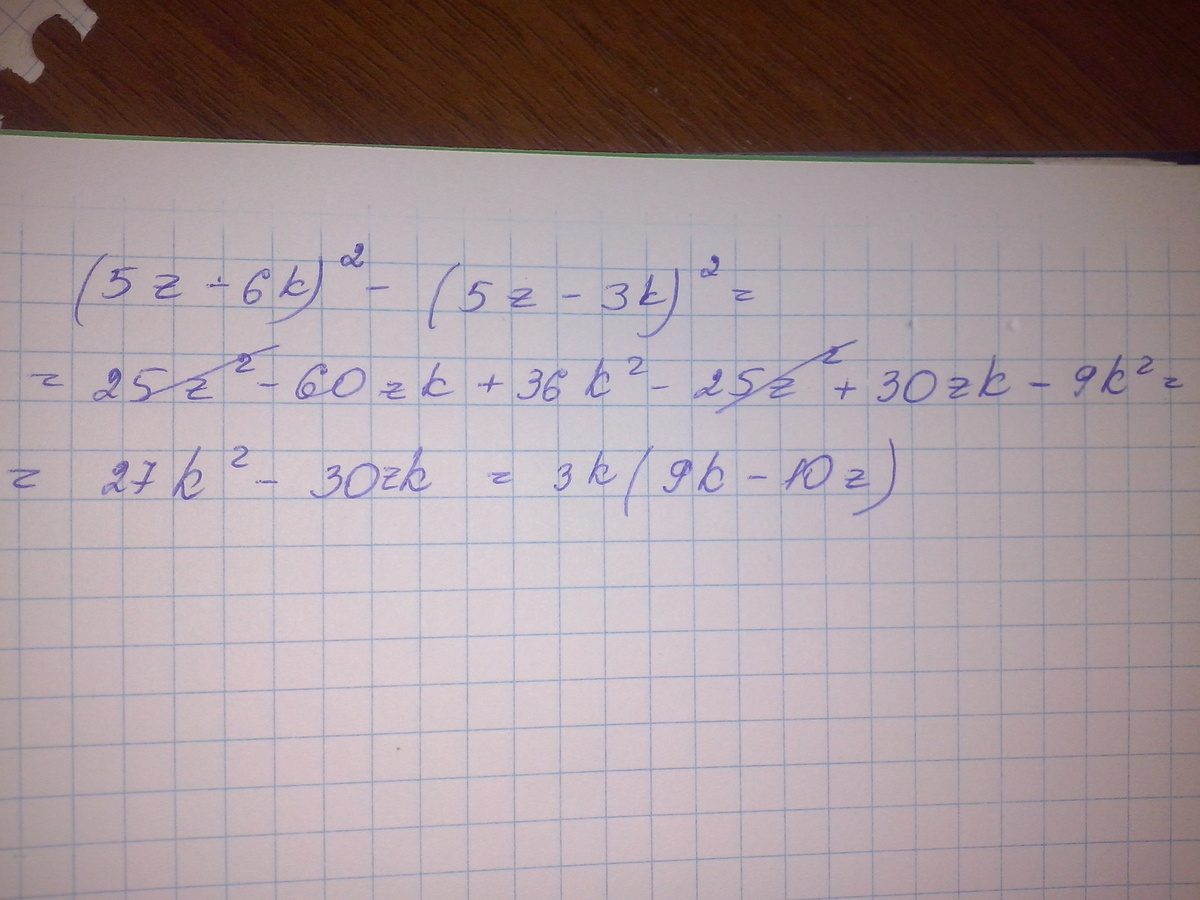 (5z - 6k)² - (5z - 3k)² =
= 25z² - 60zk + 36k² - 25z² + 30zk - 9k² =
= 27k² - 30zk = 3k(9k - 10z)